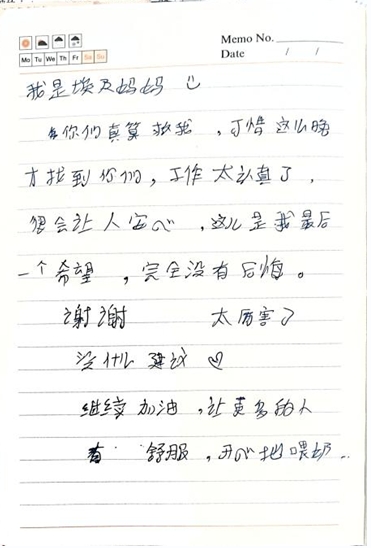 Memo No.
Date / /
Mo Tu We Th Fr Sa Su
我是埃及妈妈
你们真算救我，可惜这么晚
才找到你们，工作太认真了，
很会让人安心，这儿是我最后
一个希望，完全没有后悔。
谢谢 太厉害了
没什么建议
继续加油，让更多的人
有 舒服，开心地喂奶..